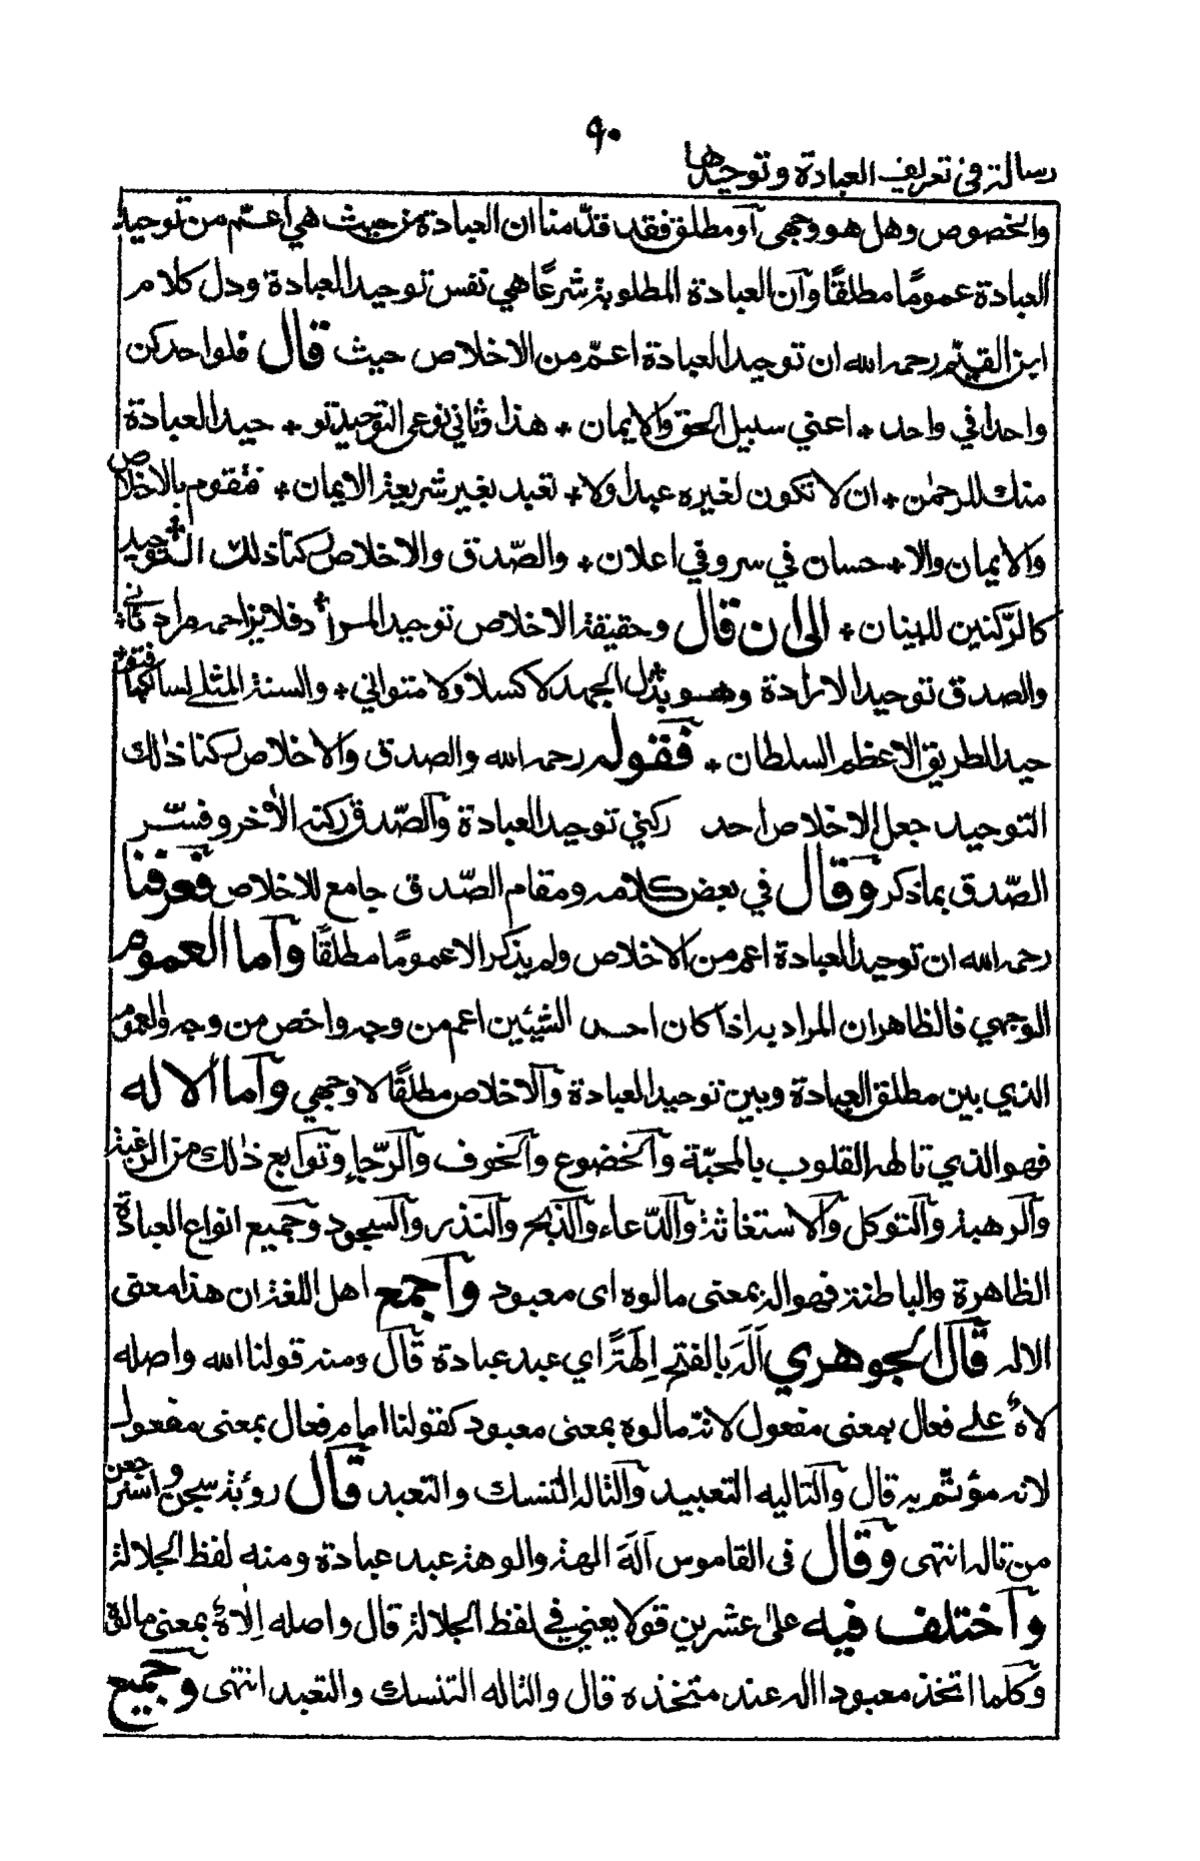 ٩٠
رسالة في تعريف العبادة وتوحيدها
والخصوص وهل هو وجهي أو مطلق فقد قدّمنا ان العبادة من حيث هي أعمّ من توحيد
العبادة عمومًا مطلقًا وأن العبادة المطلوبة شرعًا هي نفس توحيد العبادة ودل كلام
ابن القيّم رحمه الله ان توحيد العبادة اعمّ من الاخلاص حيث قال فلواحد كن
واحدا في واحد + اعني سبيل الحق والايمان + هذا وثاني نوعي التوحيد تو + حيد العبادة
منك للرحمٰن + ان لا تكون لغيره عبدا ولا + تعبد بغير شريعة الايمان + فتقوم بالاخلاص
والايمان والا + حسان في سر وفي اعلان + والصّدق والاخلاص ركنا ذلك التوحيد
كالرّكنين للبنيان + الى ان قال وحقيقة الاخلاص توحيد المراد فلا يزاحمه مراد ثاني
والصدق توحيد الارادة وهو بذل الجهد لا كسلا ولا متواني + والسنة المثلى لسالكها فتو
حيد للطريق الاعظم السلطان + فقوله رحمه الله والصدق والاخلاص ركنا ذلك
التوحيد جعل الاخلاص احد ركني توحيد العبادة والصّدق ركنه الآخر وفسّر
الصّدق بما ذكر وقال في بعض كلامه ومقام الصّدق جامع للاخلاص فعرفنا
رحمه الله ان توحيد العبادة اعم من الاخلاص ولم يذكر الا عمومًا مطلقًا وأما العموم
الوجهي فالظاهر ان المراد به اذا كان احد الشيئين اعم من وجه واخص من وجه والعموم
الذي بين مطلق العبادة وبين توحيد العبادة والاخلاص مطلقًا لا وجهي وأما الاله
فهو الذي تالهه القلوب بالمحبّة والخضوع والخوف والرّجاء وتوابع ذلك من الرغبة
والرهبة والتوكل والاستغاثة والدّعاء والذبح والنذر والسجود وجميع انواع العبادة
الظاهرة والباطنة فهو اله بمعنى مالوه اى معبود وأجمع اهل اللغة ان هذا معنى
الاله قال الجوهري ألَه بالفتح إلٰهةً اي عبد عبادة قال ومنه قولنا الله واصله
لاهٌ على فعال بمعنى مفعول لانه مالوه بمعنى معبود كقولنا امام فعال بمعنى مفعول
لانه مؤتمّ به قال والتاليه التعبيد والتاله التنسك والتعبد قال رؤبة سبحن واسترجعن
من تاله انتهى وقال فى القاموس ألَهَ الهة والوهة عبد عبادة ومنه لفظ الجلالة
وأختلف فيه على عشرين قولا يعني في لفظ الجلالة قال واصله إلاهٌ بمعنى مالوه
وكلما اتخذ معبودا اله عند متخذه قال والتاله التنسك والتعبد انتهى وجميع